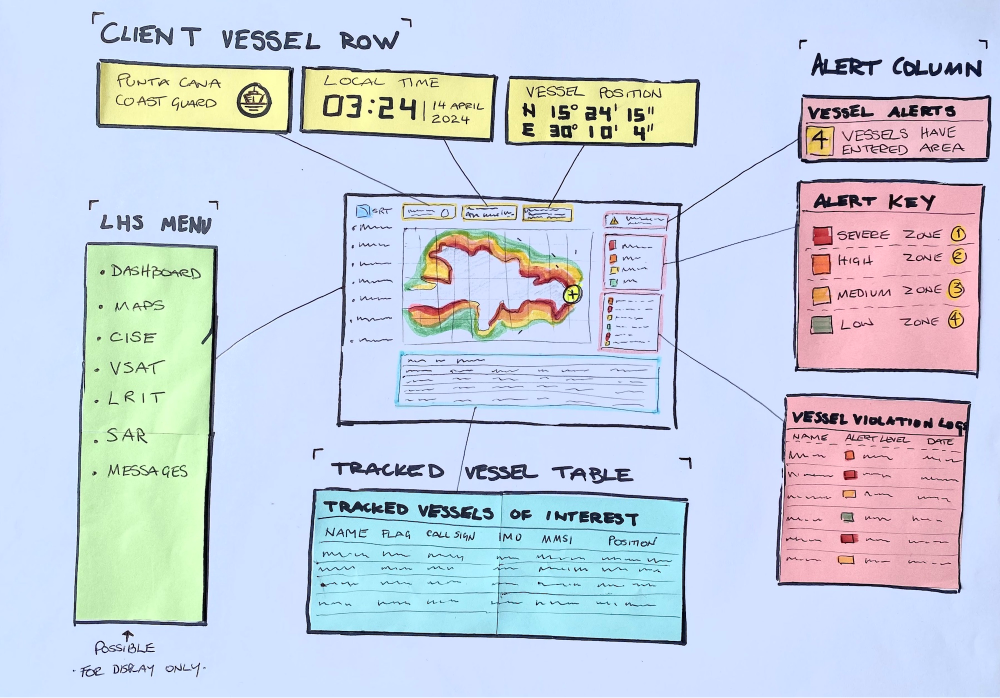 CLIENT VESSEL ROW
PUNTA CANA
COAST GUARD
LOCAL TIME
03:24 | 14 APRIL
2024
VESSEL POSITION
N 15° 24' 15"
E 30° 10' 4"
ALERT COLUMN
VESSEL ALERTS
4 VESSELS HAVE
ENTERED AREA
ALERT KEY
SEVERE ZONE 1
HIGH ZONE 2
MEDIUM ZONE 3
LOW ZONE 4
VESSEL VIOLATION LOGS
NAME ALERT LEVEL DATE
LHS MENU
• DASHBOARD
• MAPS
• CISE
• VSAT
• LRIT
• SAR
• MESSAGES
POSSIBLE
· FOR DISPLAY ONLY ·
SRT
TRACKED VESSEL TABLE
TRACKED VESSELS OF INTEREST
NAME FLAG CALL SIGN IMO MMSI POSITION